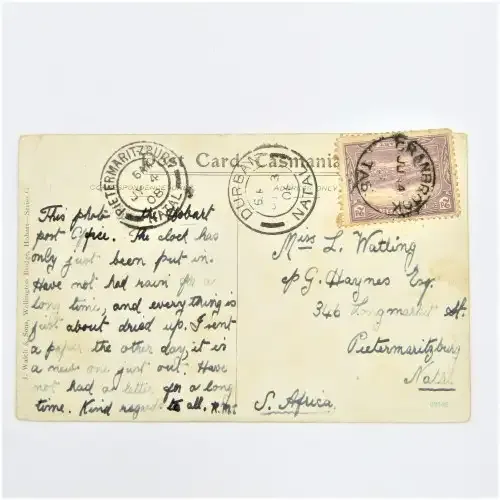 Post Card Tasmania
PIETERMARITZBURG
NATAL
DURBAN
NATAL
CRANBROOK
JU 4
TAS
This photo the Hobart
post Office. The clock has
only just been put in.
Have not had rain for a
long time, and everything is
just about dried up. I sent
a paper the other day, it is
a new one just out. Have
not had a letter for a long
time. Kind regards to all.
Miss L. Watling
c/o G. Haynes Esq.
346 Longmarket St.
Pietermaritzburg
Natal
S. Africa.
J. Walch & Sons, Wellington Bridge, Hobart.